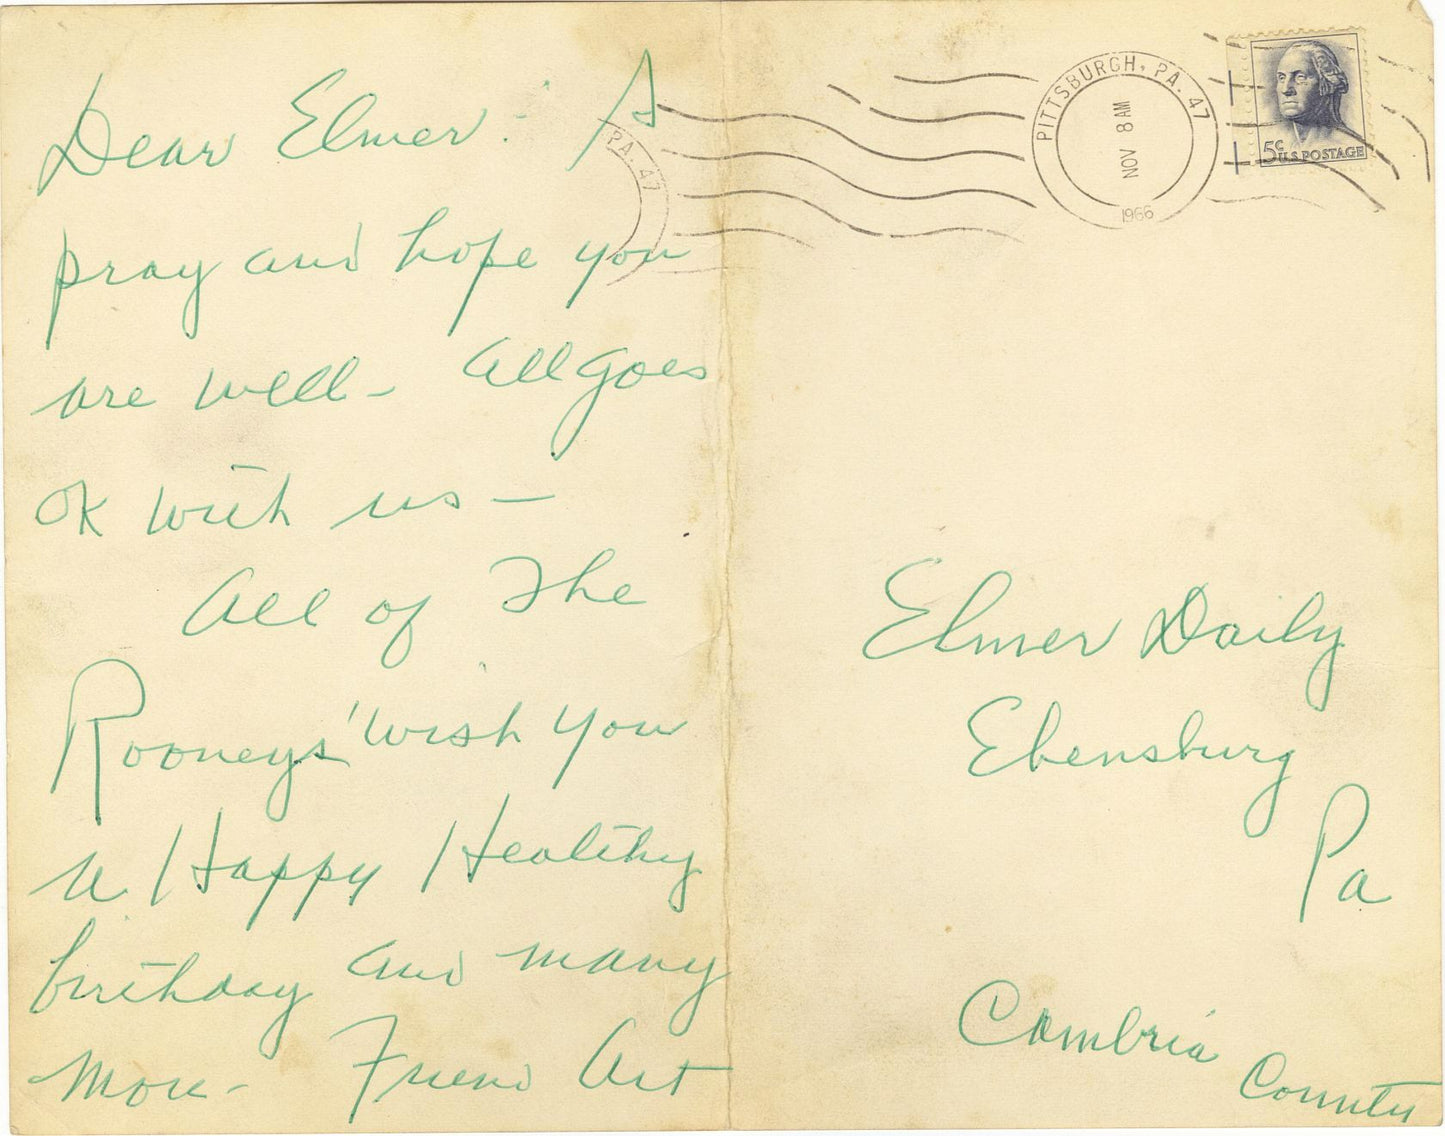 Dear Elmer: I
pray and hope you
are well - all goes
OK with us -
All of The
Rooneys' wish you
a Happy Healthy
birthday and many
more - Friend Art
PA. 47
PITTSBURGH, PA. 47
NOV 8 AM
1966
5¢ U.S. POSTAGE
Elmer Daily
Ebensburg
Pa
Cambria
County